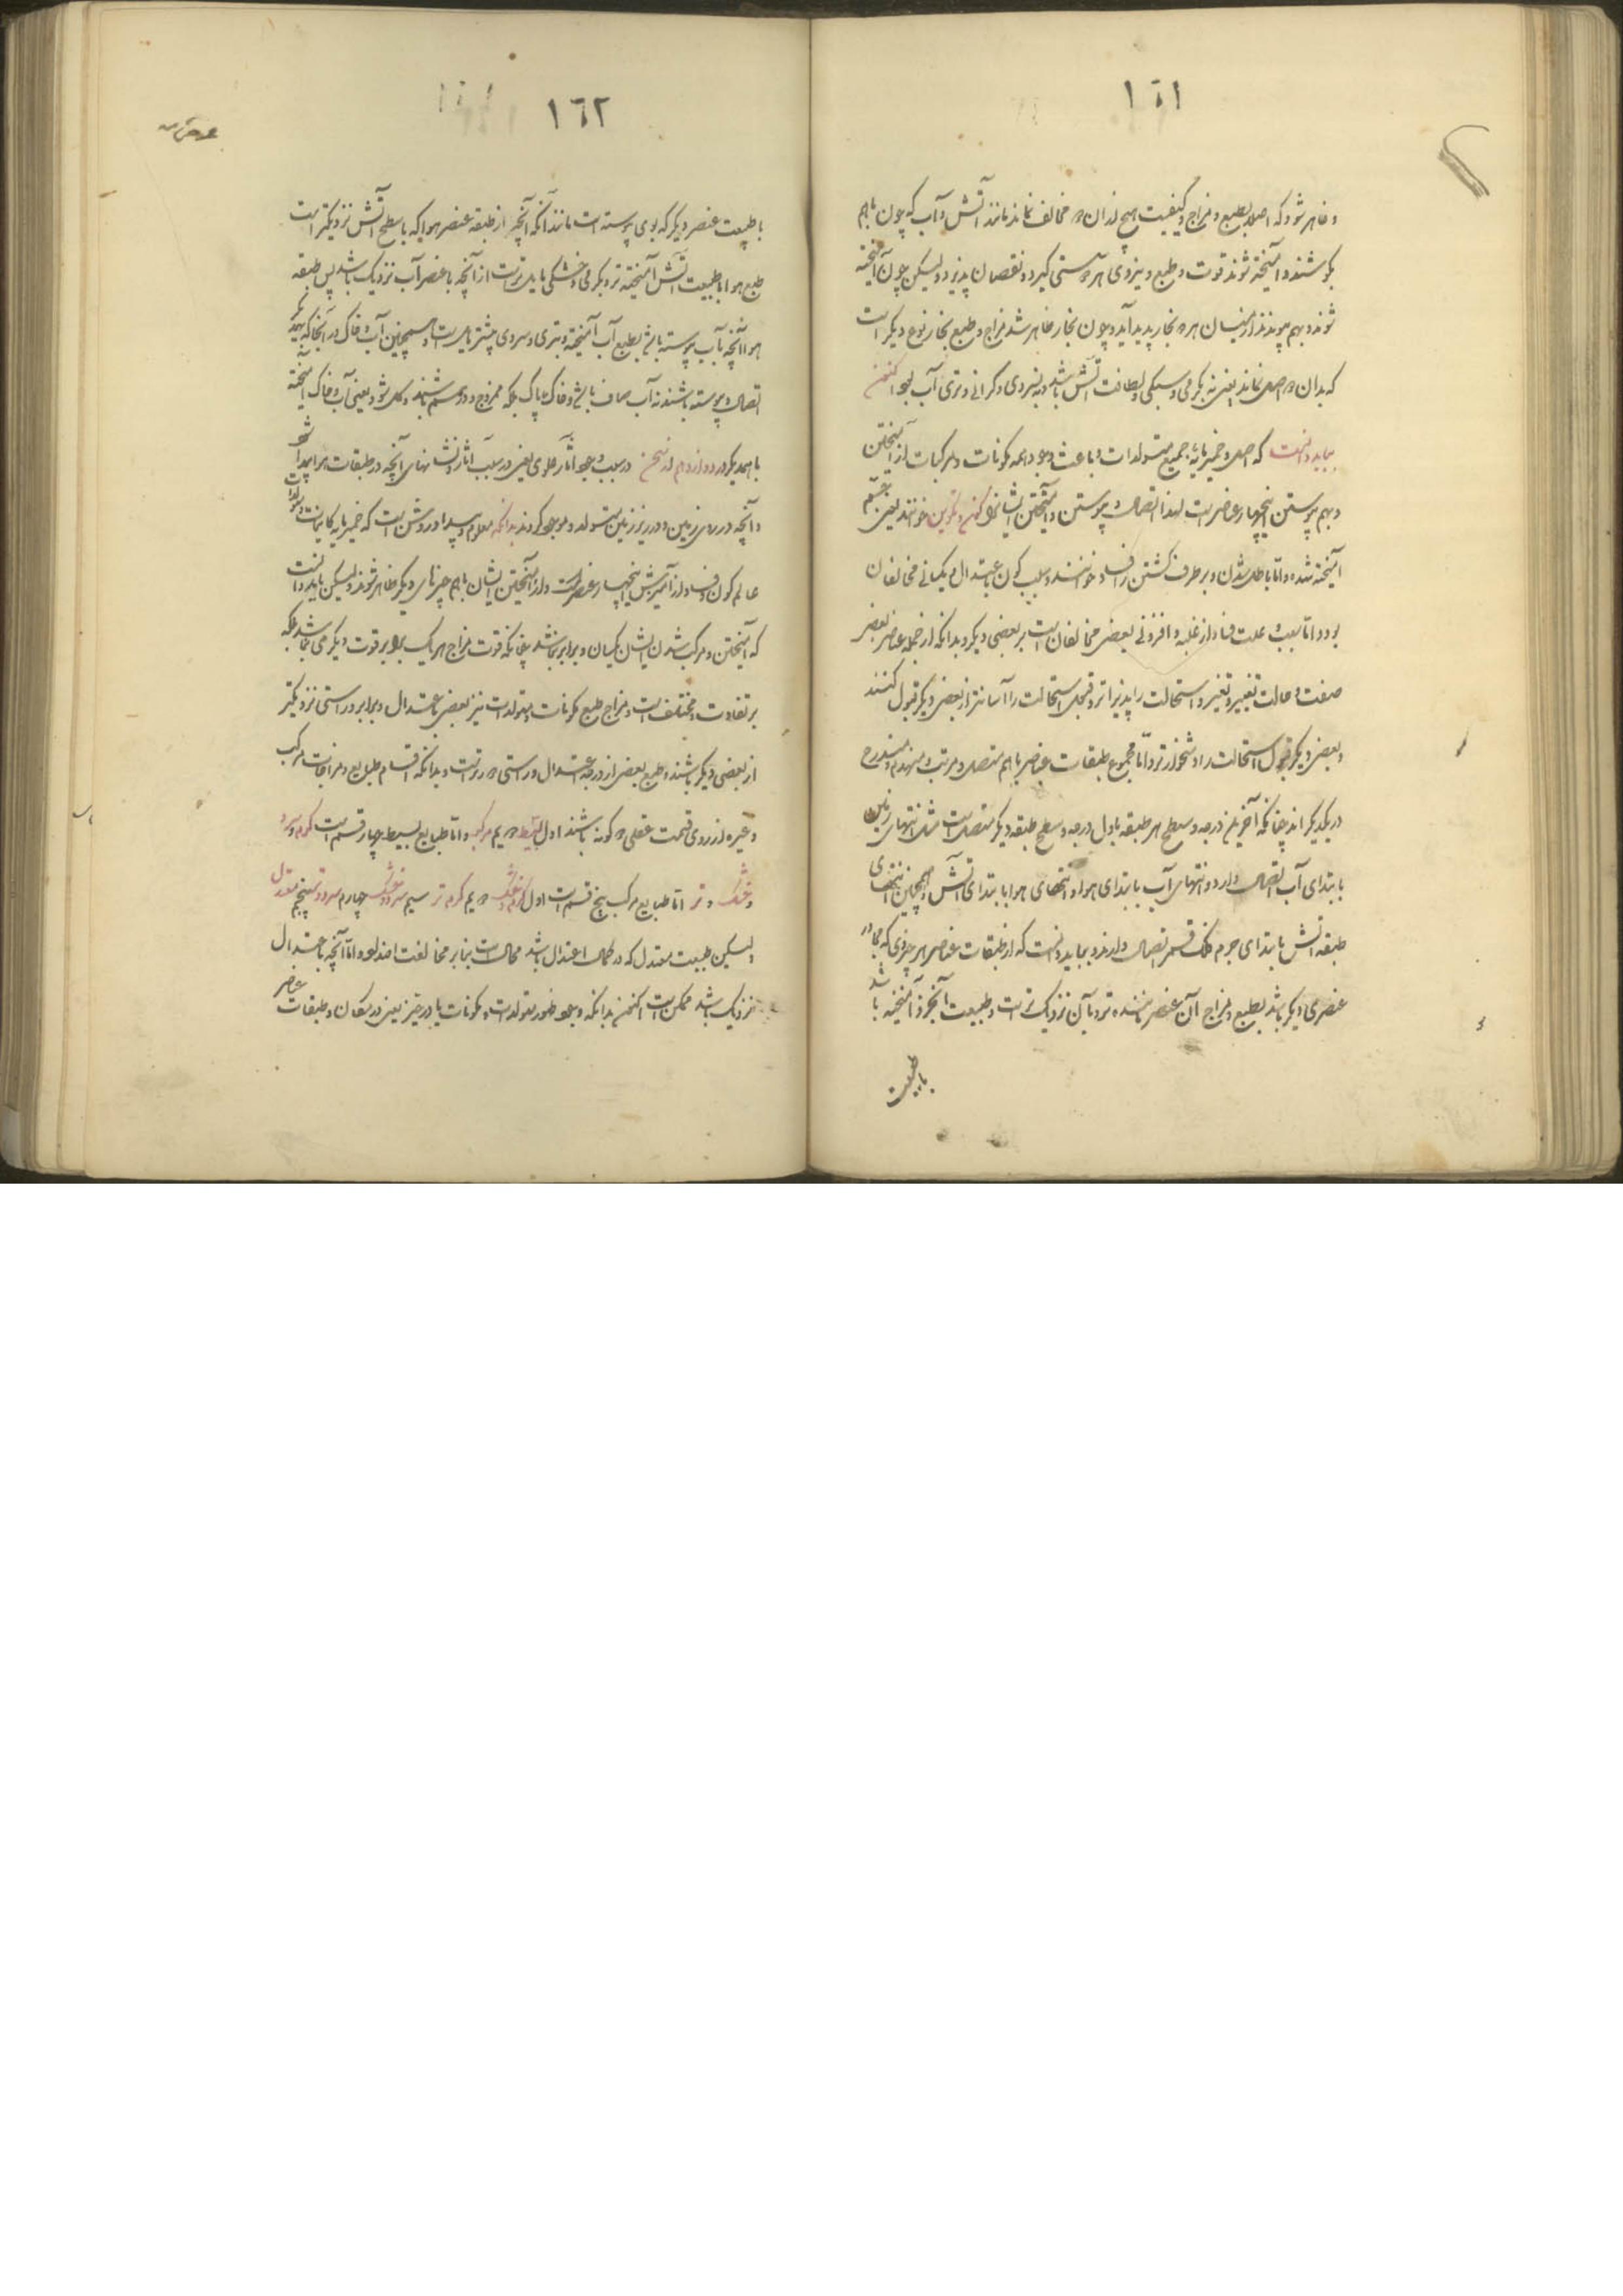 ١٦١
و ظاهر شود که اصلا بطبع و مزاج و کیفیت هیچ از آن دو مخالف نماند مانند آتش و آب که چون باهم
بکوشند و آمیخته شوند قوت و طبع و نیروی هر دو سستی کیرد و نقصان پذیرد و لیکن چون آمیخته
شوند و بهم پیوندند از میان هر دو بخار پدید آید و چون بخار ظاهر شد مزاج و طبع بخار نوع دیکر است
که بدان دو اصل نماند یعنی نه بکرمی و سبکی و لطافت آتش باشد و نه بسردی و کرانی و تری آب بود اکنون
بباید دانست که اصل و خمیرمایهٔ جمیع متولدات و باعث وجود همه مکونات و مرکبات از آمیختن
و بهم پیوستن این چهار عنصر است لهذا اتصال و پیوستن و آمیختن ایشانرا کون و تکوین خوانند یعنی
آمیخته شده و اما باطل شدن و برطرف کشتن را فساد خوانند و سبب کون اعتدال و یکسانی مخالفان
بود و اما سبب و علت فساد از غلبه و افزونی بعضی مخالفان است بر بعضی دیکر و بدانکه از جمله عناصر بعضی
صفت و حالت تغییر و تغیر و استحالت را پذیراتر و قبول استحالت را آسانتر از بعضی دیکر قبول کنند
و بعضی دیکر قبول استحالت را دشخوارتر و اما مجموع طبقات عناصر باهم متصل و مرتب و مندرج
در یکدیکر اند چنانکه آخرین درجه و سطح هر طبقه باول درجه و سطح طبقه دیکر متصل است مثل انتهای زمین
بابتدای آب اتصال دارد و انتهای آب بابتدای هوا و انتهای هوا بابتدای آتش و همچنین انتهای
طبقه آتش بابتدای جرم فلک قمر اتصال دارد و بباید دانست که از طبقات عناصر هر جزوی که مجاور
عنصری دیکر باشد بطبع و مزاج آن عنصر ماننده‌تر و بآن نزدیک‌تر است و طبیعت آنجزو آمیخته باشد
باطبیعت
١٦٢
باطبیعت عنصر دیکر که بوی پیوسته است مانند آنکه آنچه از طبقه عنصر هوا که باسطح آتش نزدیکتر است
طبع هوا باطبیعت آتش آمیخته‌تر و بکرمی و خشکی مایل‌تر است از آنچه باعنصر آب نزدیک باشد پس طبقه
هوا آنچه بآب پیوسته باشد بطبع آب آمیخته و بتری و سردی بیشتر مایل است و همچنین آب و خاک در آنجا که بهمدیکر
اتصال و پیوسته باشند نه آب صاف باشد و خاک پاک بلکه ممزوج و درهم باشند و کل شود یعنی آب و خاک آمیخته
باهمدیکر در دوازدهم از سخن در سبب وجود آثار علوی یعنی در سبب آثار و نشانهای آنچه در طبقات هوا پیدا شود
و آنچه در روی زمین و در زیر زمین متولد و موجود کردند بدانکه معلوم و پیدا و روشن است که خمیرمایه کاینات و متولدات
عالم کون و فساد از آمیزش این چهار عنصر است و از آمیختن ایشان باهم چیزهای دیکر ظاهر شوند و لیکن باید دانست
که آمیختن و مرکب شدن ایشان یکسان و برابر نباشد چنانکه قوت مزاج هریک برابر قوت دیکرمی باشد بلکه
بر تفاوت و مختلف است و مزاج و طبع مکونات و متولدات نیز بعضی باعتدال و برابر و راستی نزدیکتر
از بعضی دیکر باشند و طبع بعضی از درجه اعتدال و راستی دورتر است و بدانکه اقسام طبایع و مزاجات مرکب
و غیره از روی قسمت عقلی دو کونه باشند اول بسیط دویم مرکب و اما طبایع بسیط چهار قسم است کرم و سرد
و خشک و تر اما طبایع مرکب پنج قسم است اول کرم و خشک دویم کرم و تر سیم سرد و خشک چهارم سرد و تر پنجم معتدل
و لیکن طبیعت معتدل که در کمال اعتدال باشد محال است بنابر مخالفت اضداد و اما آنچه باعتدال
نزدیک باشد ممکن است اکنون بدانکه وجود و ظهور متولدات و مکونات یا در حیز یعنی در مکان و طبقات عناصر